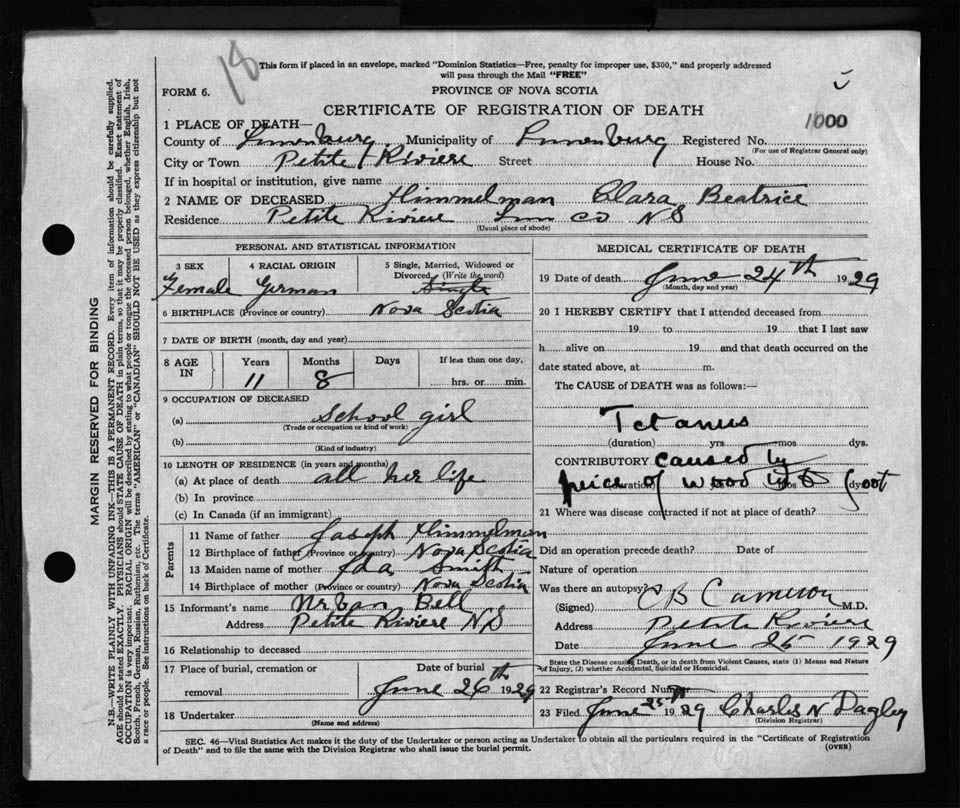 18
This form if placed in an envelope, marked "Dominion Statistics—Free, penalty for improper use, $300," and properly addressed
will pass through the Mail "FREE"
FORM 6.
PROVINCE OF NOVA SCOTIA
CERTIFICATE OF REGISTRATION OF DEATH
1000
1 PLACE OF DEATH—
County of Lunenburg Municipality of Lunenburg Registered No.
(For use of Registrar General only)
City or Town Petite Riviere Street House No.
If in hospital or institution, give name
2 NAME OF DECEASED Himmelman Clara Beatrice
Residence Petite Riviere Lun Co NS
(Usual place of abode)
PERSONAL AND STATISTICAL INFORMATION
3 SEX 4 RACIAL ORIGIN 5 Single, Married, Widowed or
Divorced (Write the word)
Female German Single
6 BIRTHPLACE (Province or country) Nova Scotia
7 DATE OF BIRTH (month, day and year)
8 AGE IN Years Months Days If less than one day,
11 8 hrs. or min.
9 OCCUPATION OF DECEASED
(a) School girl
(Trade or occupation or kind of work)
(b)
(Kind of industry)
10 LENGTH OF RESIDENCE (in years and months)
(a) At place of death all her life
(b) In province
(c) In Canada (if an immigrant)
Parents
11 Name of father Joseph Himmelman
12 Birthplace of father (Province or country) Nova Scotia
13 Maiden name of mother Ida Smith
14 Birthplace of mother (Province or country) Nova Scotia
15 Informant's name Urban Bell
Address Petite Riviere NS
16 Relationship to deceased
17 Place of burial, cremation or Date of burial
removal June 26th 1929
18 Undertaker
(Name and address)
MEDICAL CERTIFICATE OF DEATH
19 Date of death June 24th 1929
(Month, day and year)
20 I HEREBY CERTIFY that I attended deceased from
19 to 19 that I last saw
h alive on 19 and that death occurred on the
date stated above, at m.
The CAUSE of DEATH was as follows:—
Tetanus
(duration) yrs. mos. dys.
CONTRIBUTORY caused by
(duration) yrs. mos. dys.
piece of wood in foot
21 Where was disease contracted if not at place of death?
Did an operation precede death? Date of
Nature of operation
Was there an autopsy?
(Signed) C B Cameron M.D.
Address Petite Riviere
Date June 25 1929
State the Disease causing Death, or in death from Violent Causes, state (1) Means and Nature
of Injury, (2) whether Accidental, Suicidal or Homicidal.
22 Registrar's Record Number
23 Filed June 25th 1929 Charles N Pagley
(Division Registrar)
SEC. 46—Vital Statistics Act makes it the duty of the Undertaker or person acting as Undertaker to obtain all the particulars required in the "Certificate of Registration
of Death" and to file the same with the Division Registrar who shall issue the burial permit.
(OVER)
MARGIN RESERVED FOR BINDING
N.B.—WRITE PLAINLY WITH UNFADING INK—THIS IS A PERMANENT RECORD. Every item of information should be carefully supplied.
AGE should be stated EXACTLY. PHYSICIANS should STATE CAUSE OF DEATH in plain terms, so that it may be properly classified. Exact statement of
OCCUPATION is very important. RACIAL ORIGIN will be described by stating to what people or tongue the deceased person belonged, whether English, Irish,
Scotch, French, German, Russian, Ruthenian, etc. The terms "AMERICAN" or "CANADIAN" SHOULD NOT BE USED as they express citizenship but not
a race or people. See instructions on back of Certificate.